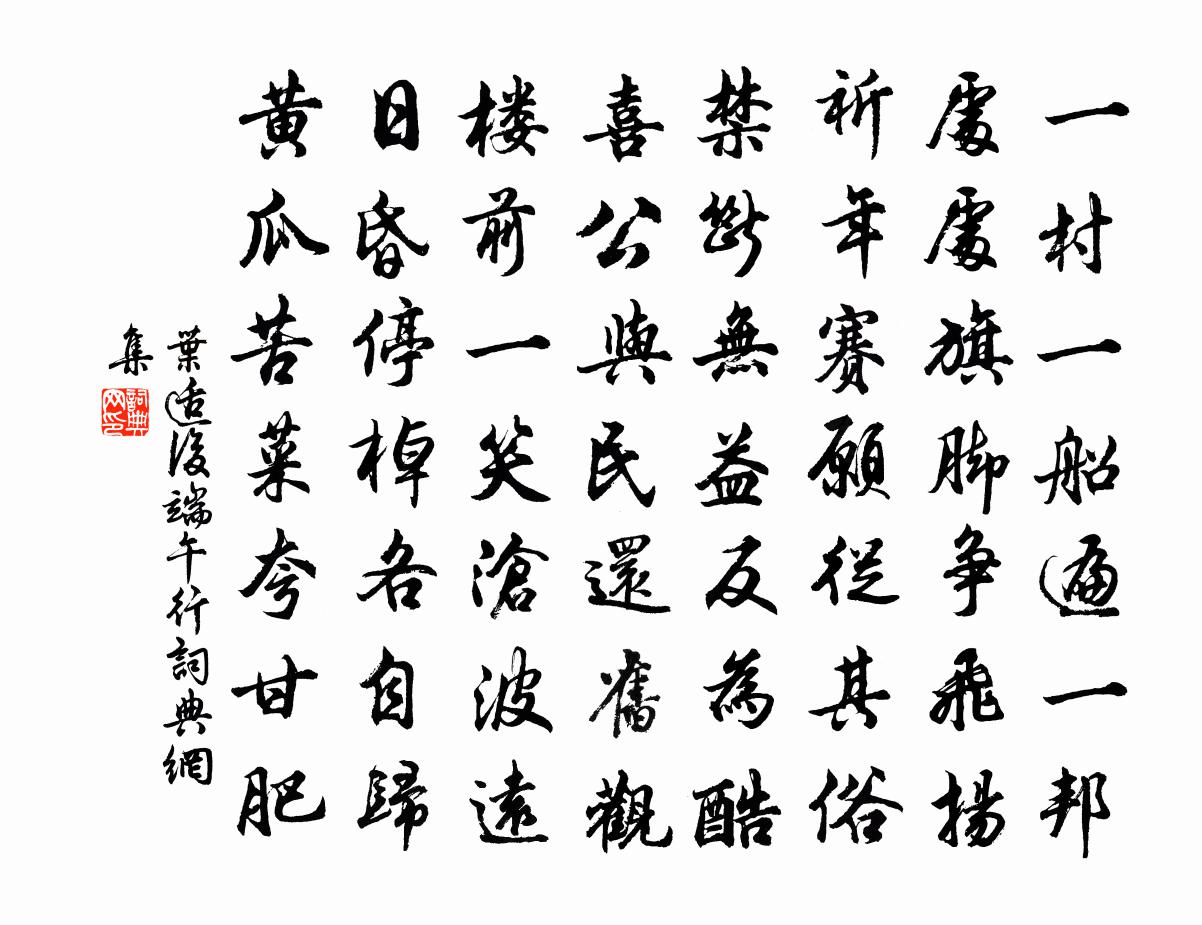 一村一船遍一邦
處處旗脚争飛揚
祈年賽願從其俗
禁斷無益反為酷
喜公與民還舊觀
楼前一笑滄波遠
日昏停棹各自歸
黄瓜苦菜夸甘肥
葉适後端午行詞典網
集
詞典网印